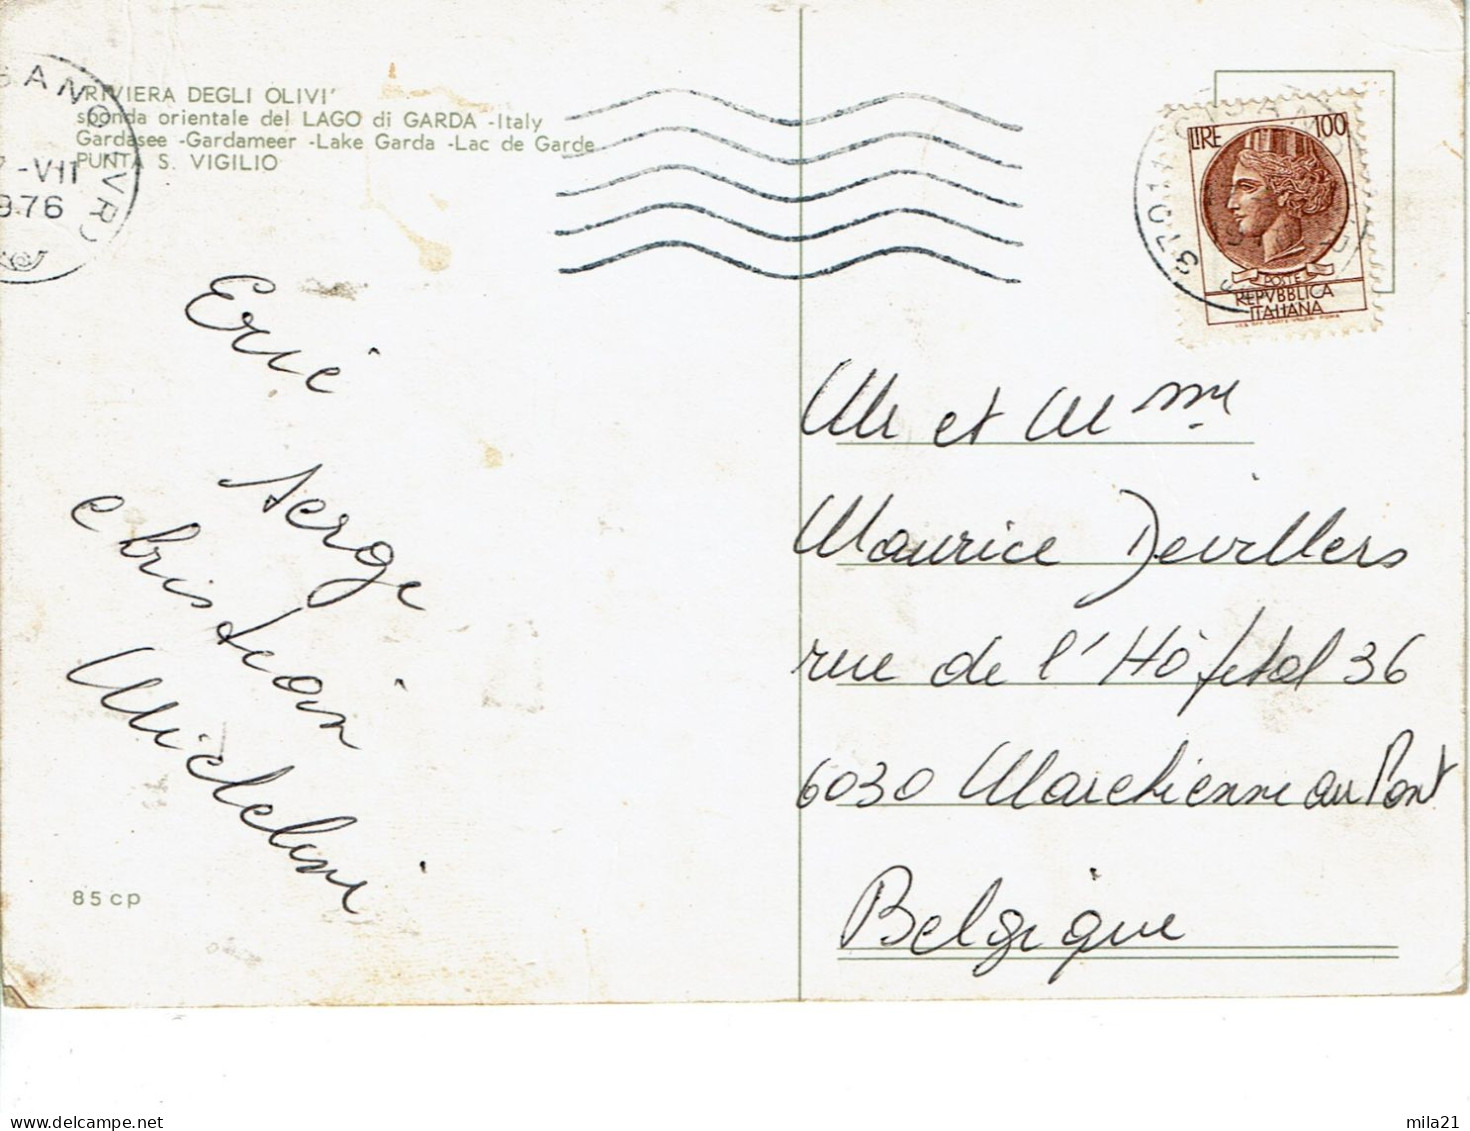 'RIVIERA DEGLI OLIVI'
sponda orientale del LAGO di GARDA -Italy
Gardasee -Gardameer -Lake Garda -Lac de Garde
PUNTA S. VIGILIO
-VII
976
LIRE 100
POSTE
REPVBBLICA
ITALIANA
Eric
Serge
christian
Micheline
Mr et Mme
Maurice Devillers
rue de l'Hôpital 36
6030 Marchienne au Pont
Belgique
85 cp
mila21